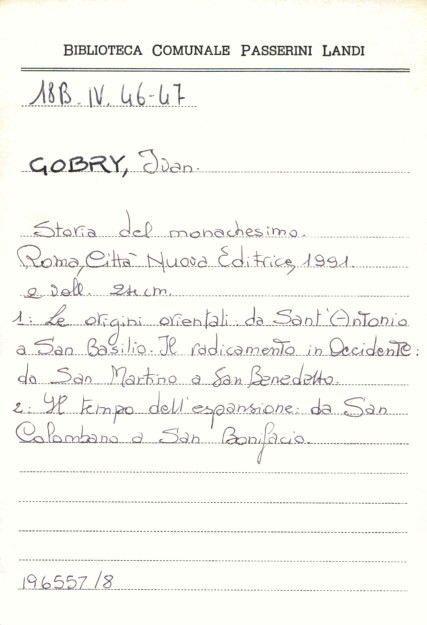 BIBLIOTECA COMUNALE PASSERINI LANDI
18B. IV. 46-47
GOBRY, Ivan.
Storia del monachesimo.
Roma, Città Nuova Editrice, 1991.
2 voll. 21 cm.
1: Le origini orientali: da Sant'Antonio
a San Basilio. Il radicamento in Occidente:
da San Martino a San Benedetto.
2: Il tempo dell'espansione: da San
Colombano a San Bonifacio.
196557/8